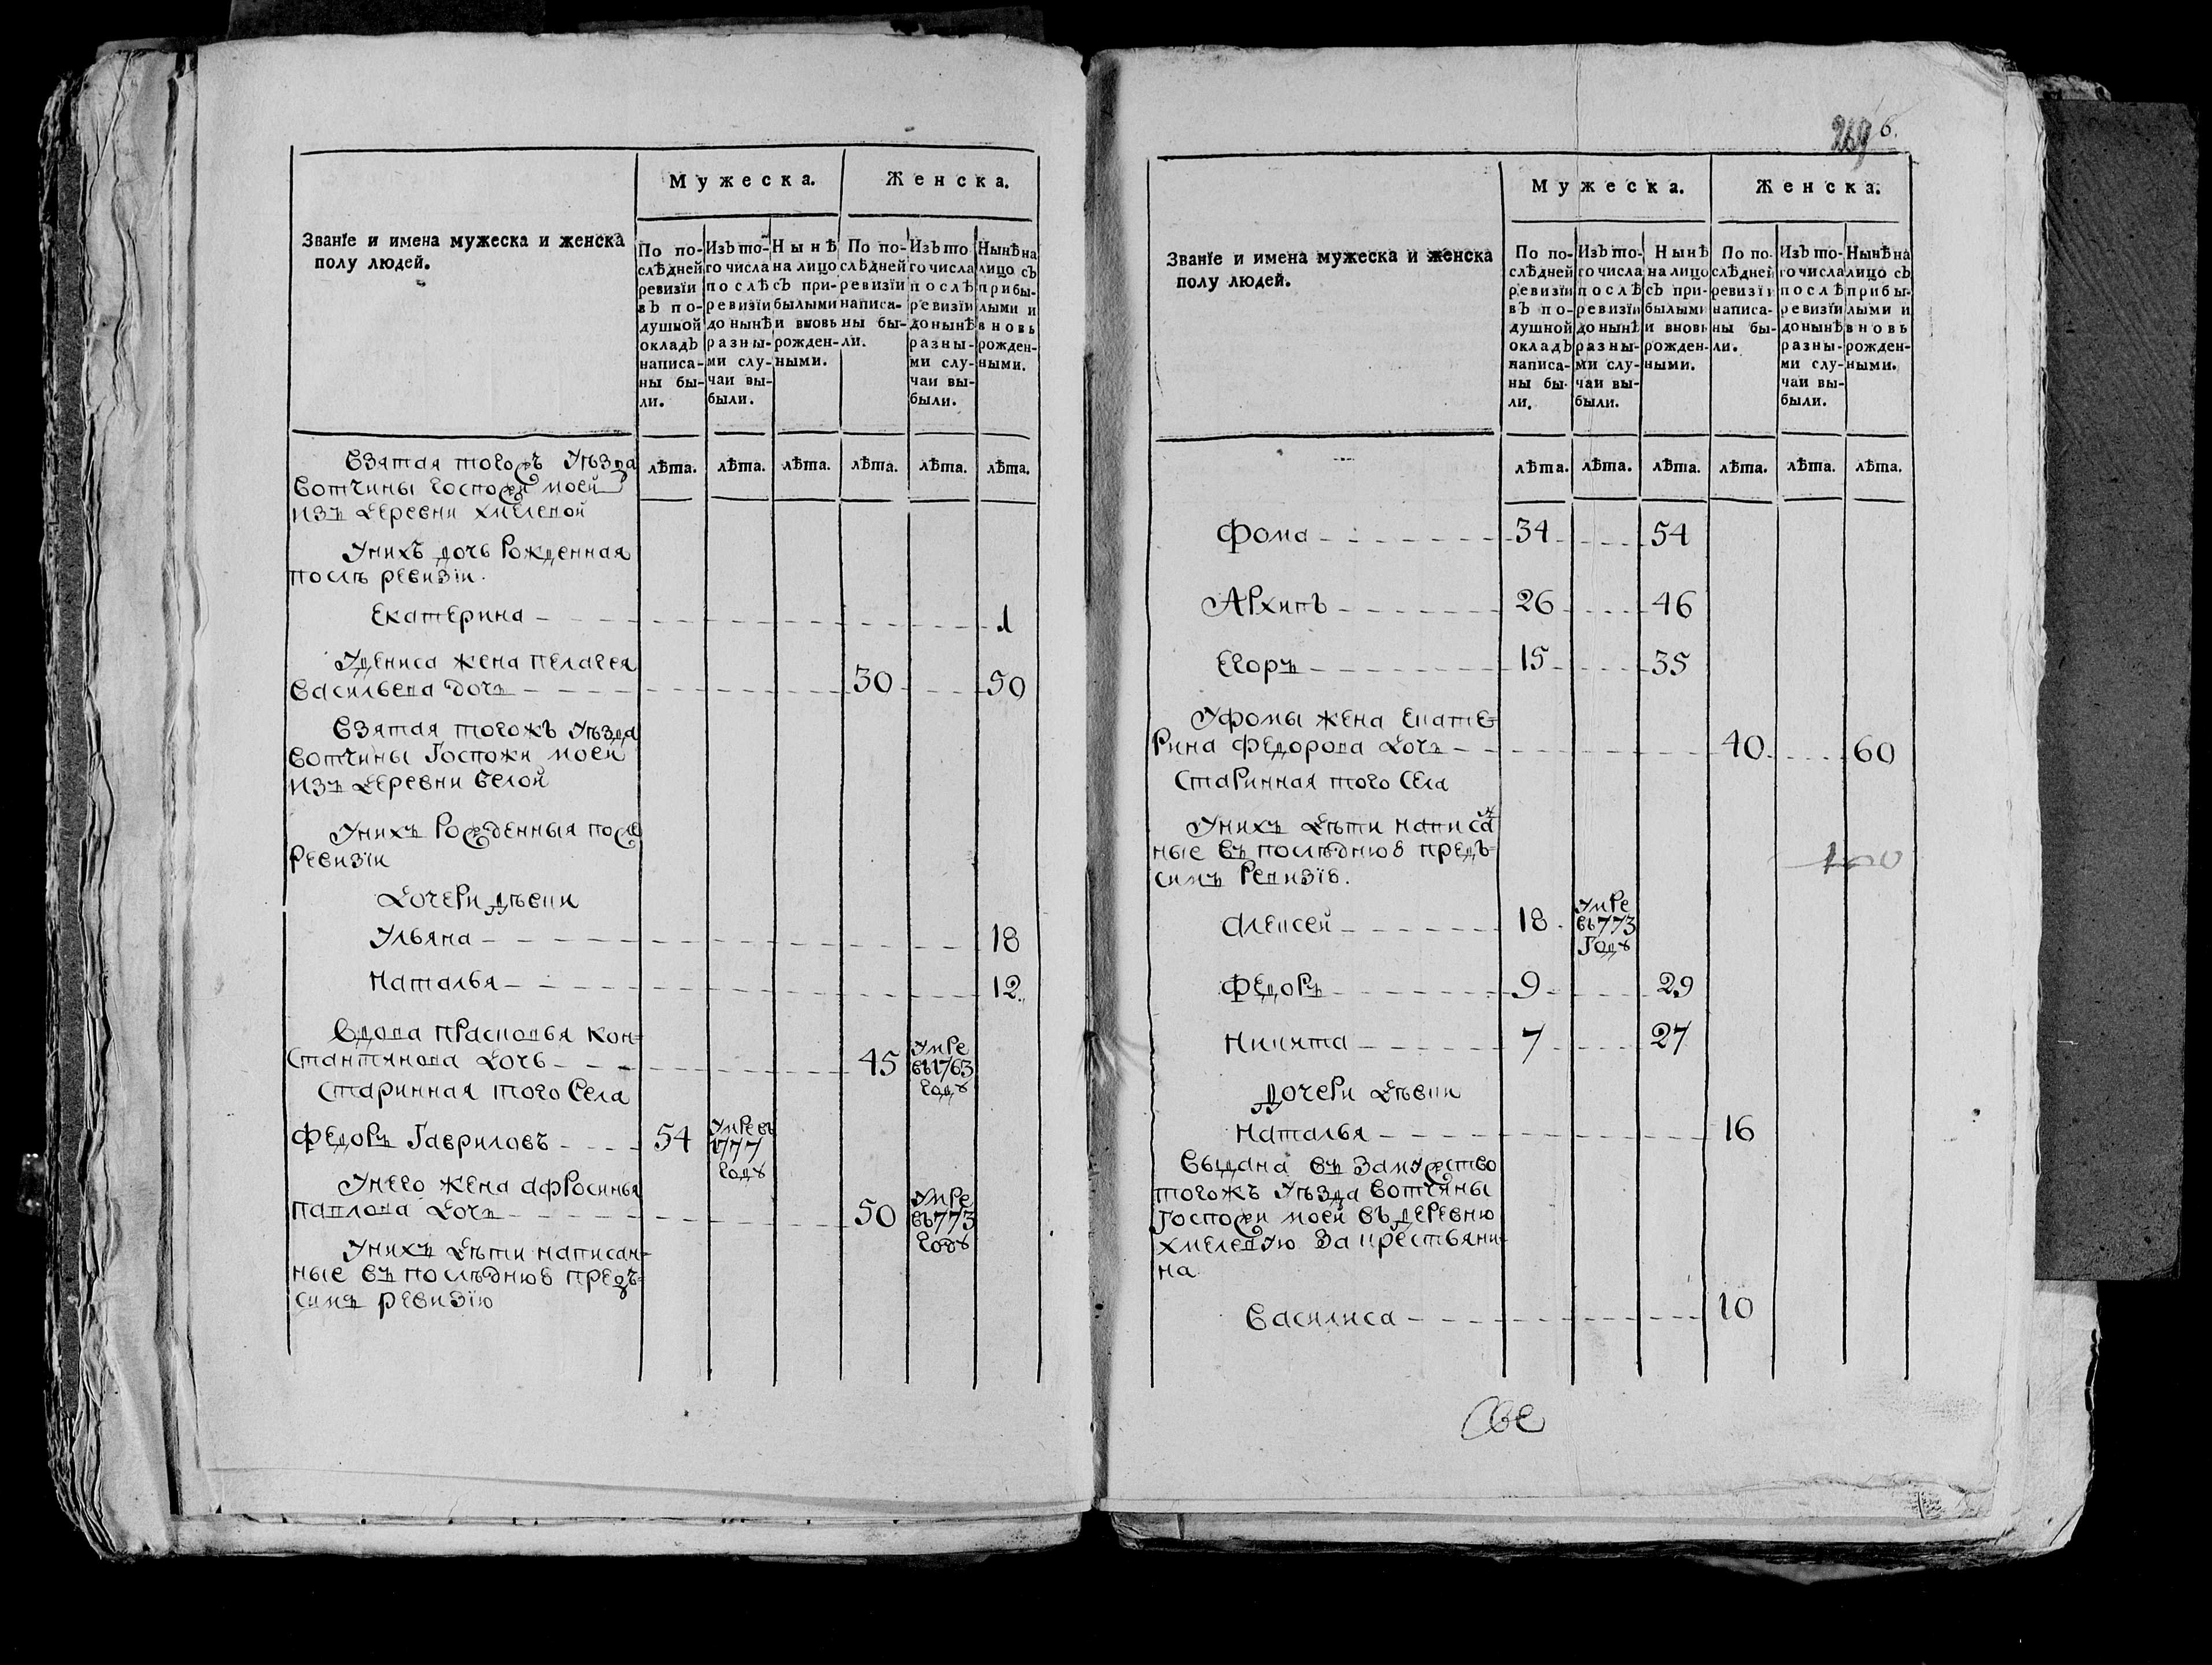 Мужеска.
Женска.
Званїе и имена мужеска и женска
полу людей.
По по-
слѣдней
ревизїи
въ по-
душной
окладъ
написа-
ны бы-
ли.
Изъ то-
го числа
послѣ
ревизїи
до нынѣ
разны-
ми слу-
чаи вы-
были.
Нынѣ
на лицо
съ при-
былыми
и вновь
рожден-
ными.
По по-
слѣдней
ревизїи
написа-
ны бы-
ли.
Изъ то
го числа
послѣ
ревизїи
до нынѣ
разны-
ми слу-
чаи вы-
были.
Нынѣ на
лицо съ
прибы-
лыми и
вновь
рожден-
ными.
лѣта. лѣта. лѣта. лѣта. лѣта. лѣта.
Взятая тогожъ Уѣзда
вотчины Госпожи моей
изъ деревни хмелевой
Унихъ дочь Рожденная
послѣ ревизїи.
Екатерина 1
Удениса жена пелагея
васильева дочь 30 50
Взятая тогожъ Уѣзда
вотчины Госпожи моей
изъ деревни белой
Унихъ Рожденныя после
Ревизїи
Дочери дѣвки
Ульяна 18
Наталья 12.
Вдова прасковья кон=
стантинова дочь 45 Умре
въ 1763
году
Старинная того Села
Федоръ Гавриловъ 54 Умре въ
1777
году
Унего жена афросинья
павлова дочь 50 Умре
въ 773
году
Унихъ дѣти написан=
ные въ послѣднюю предъ=
симъ ревизїю
269 6.
Мужеска.
Женска.
Званїе и имена мужеска и женска
полу людей.
По по-
слѣдней
ревизїи
въ по-
душной
окладъ
написа-
ны бы-
ли.
Изъ то-
го числа
послѣ
ревизїи
до нынѣ
разны-
ми слу-
чаи вы-
были.
Нынѣ
на лицо
съ при-
былыми
и вновь
рожден-
ными.
По по-
слѣдней
ревизїи
написа-
ны бы-
ли.
Изъ то-
го числа
послѣ
ревизїи
до нынѣ
разны-
ми слу-
чаи вы-
были.
Нынѣ на
лицо съ
прибы-
лыми и
вновь
рожден-
ными.
лѣта. лѣта. лѣта. лѣта. лѣта. лѣта.
Фома 34 54
Архипъ 26 46
Егоръ 15 35
Уфомы жена Екате=
рина федорова дочь 40 60
Старинная того Села
Унихъ дѣти написан
ные въ послѣднюю предъ=
симъ Ревизїю.
Алексей 18 Умре
въ 773
Году
Федоръ 9 29
Никита 7 27
Дочери дѣвки
Наталья 16
выдана въ замужство
тогожъ Уѣзда вотчины
Госпожи моей въ деревню
хмелевую за крестьяни=
на
Василиса 10